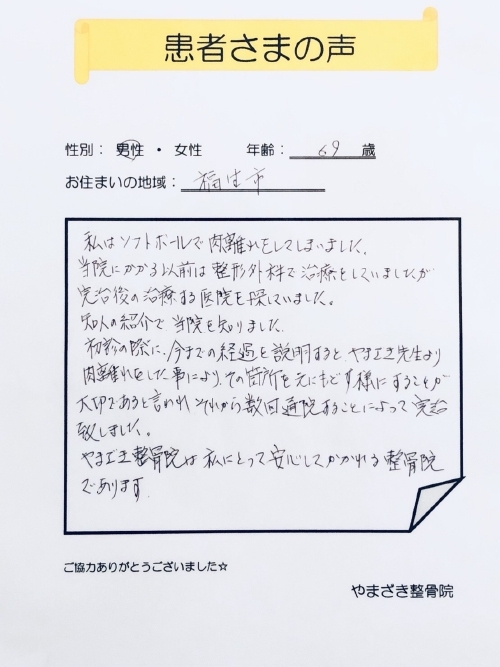 患者さまの声
性別： 男性 ・ 女性　年齢： 69 歳
お住まいの地域： 福生市
私はソフトボールで肉離れをしてしまいました。
当院にかかる以前は整形外科で治療をしていましたが
完治後の治療する医院を探していました。
知人の紹介で当院を知りました。
初診の際に、今までの経過を説明すると、やまざき先生より
肉離れをした事により、その箇所を元にもどす様にすることが
大切であると言われ それから数回通院することによって 完治
致しました。
やまざき整骨院は私にとって安心してかかれる整骨院
であります。
ご協力ありがとうございました☆
やまざき整骨院